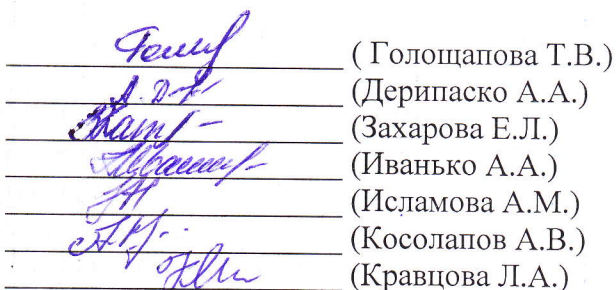 ( Голощапова Т.В.)
(Дерипаско А.А.)
(Захарова Е.Л.)
(Иванько А.А.)
(Исламова А.М.)
(Косолапов А.В.)
(Кравцова Л.А.)